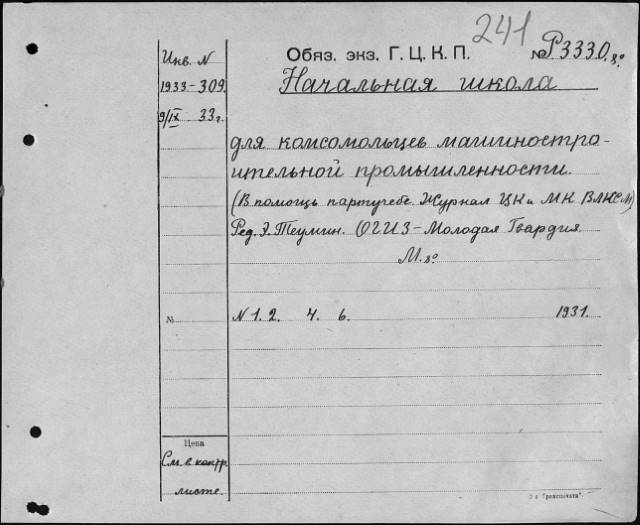 241
Инв. N
Обяз. экз. Г. Ц. К. П.
№ Р3330.8°
1933-309.
Начальная школа
9/IX 33г.
для комсомольцев машиностро-
ительной промышленности.
(В помощь партучебе. Журнал ЦК и МК ВЛКСМ)
Ред. Э. Теумин. ОГИЗ-Молодая Гвардия.
М. 8°.
№
N 1. 2. 4. 6. 1931.
Цена
См. в контр.
листе.